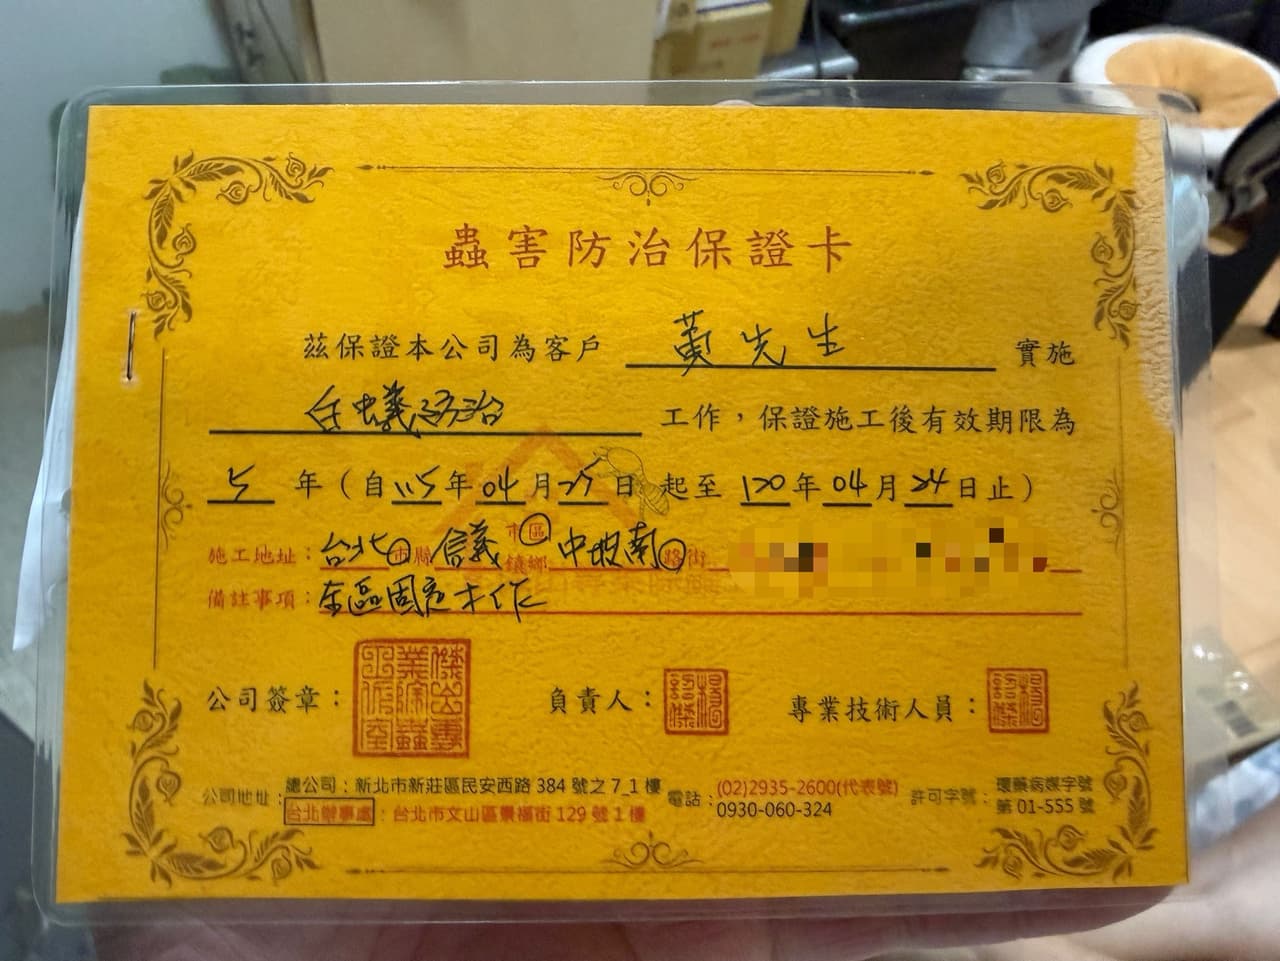 蟲害防治保證卡
茲保證本公司為客戶 黃先生 實施
白蟻防治 工作，保證施工後有效期限為
5 年（自 115 年 04 月 25 日 起至 120 年 04 月 24 日止）
施工地址：台北市縣 信義 市區鎮鄉 中坡南路街
備註事項：全區固定木作
公司簽章： 負責人： 專業技術人員：
公司地址：總公司：新北市新莊區民安西路 384 號之 7_1 樓 電話：(02)2935-2600(代表號) 許可字號：環藥病媒字號
台北辦事處：台北市文山區景福街 129 號 1 樓 0930-060-324 第 01-555 號